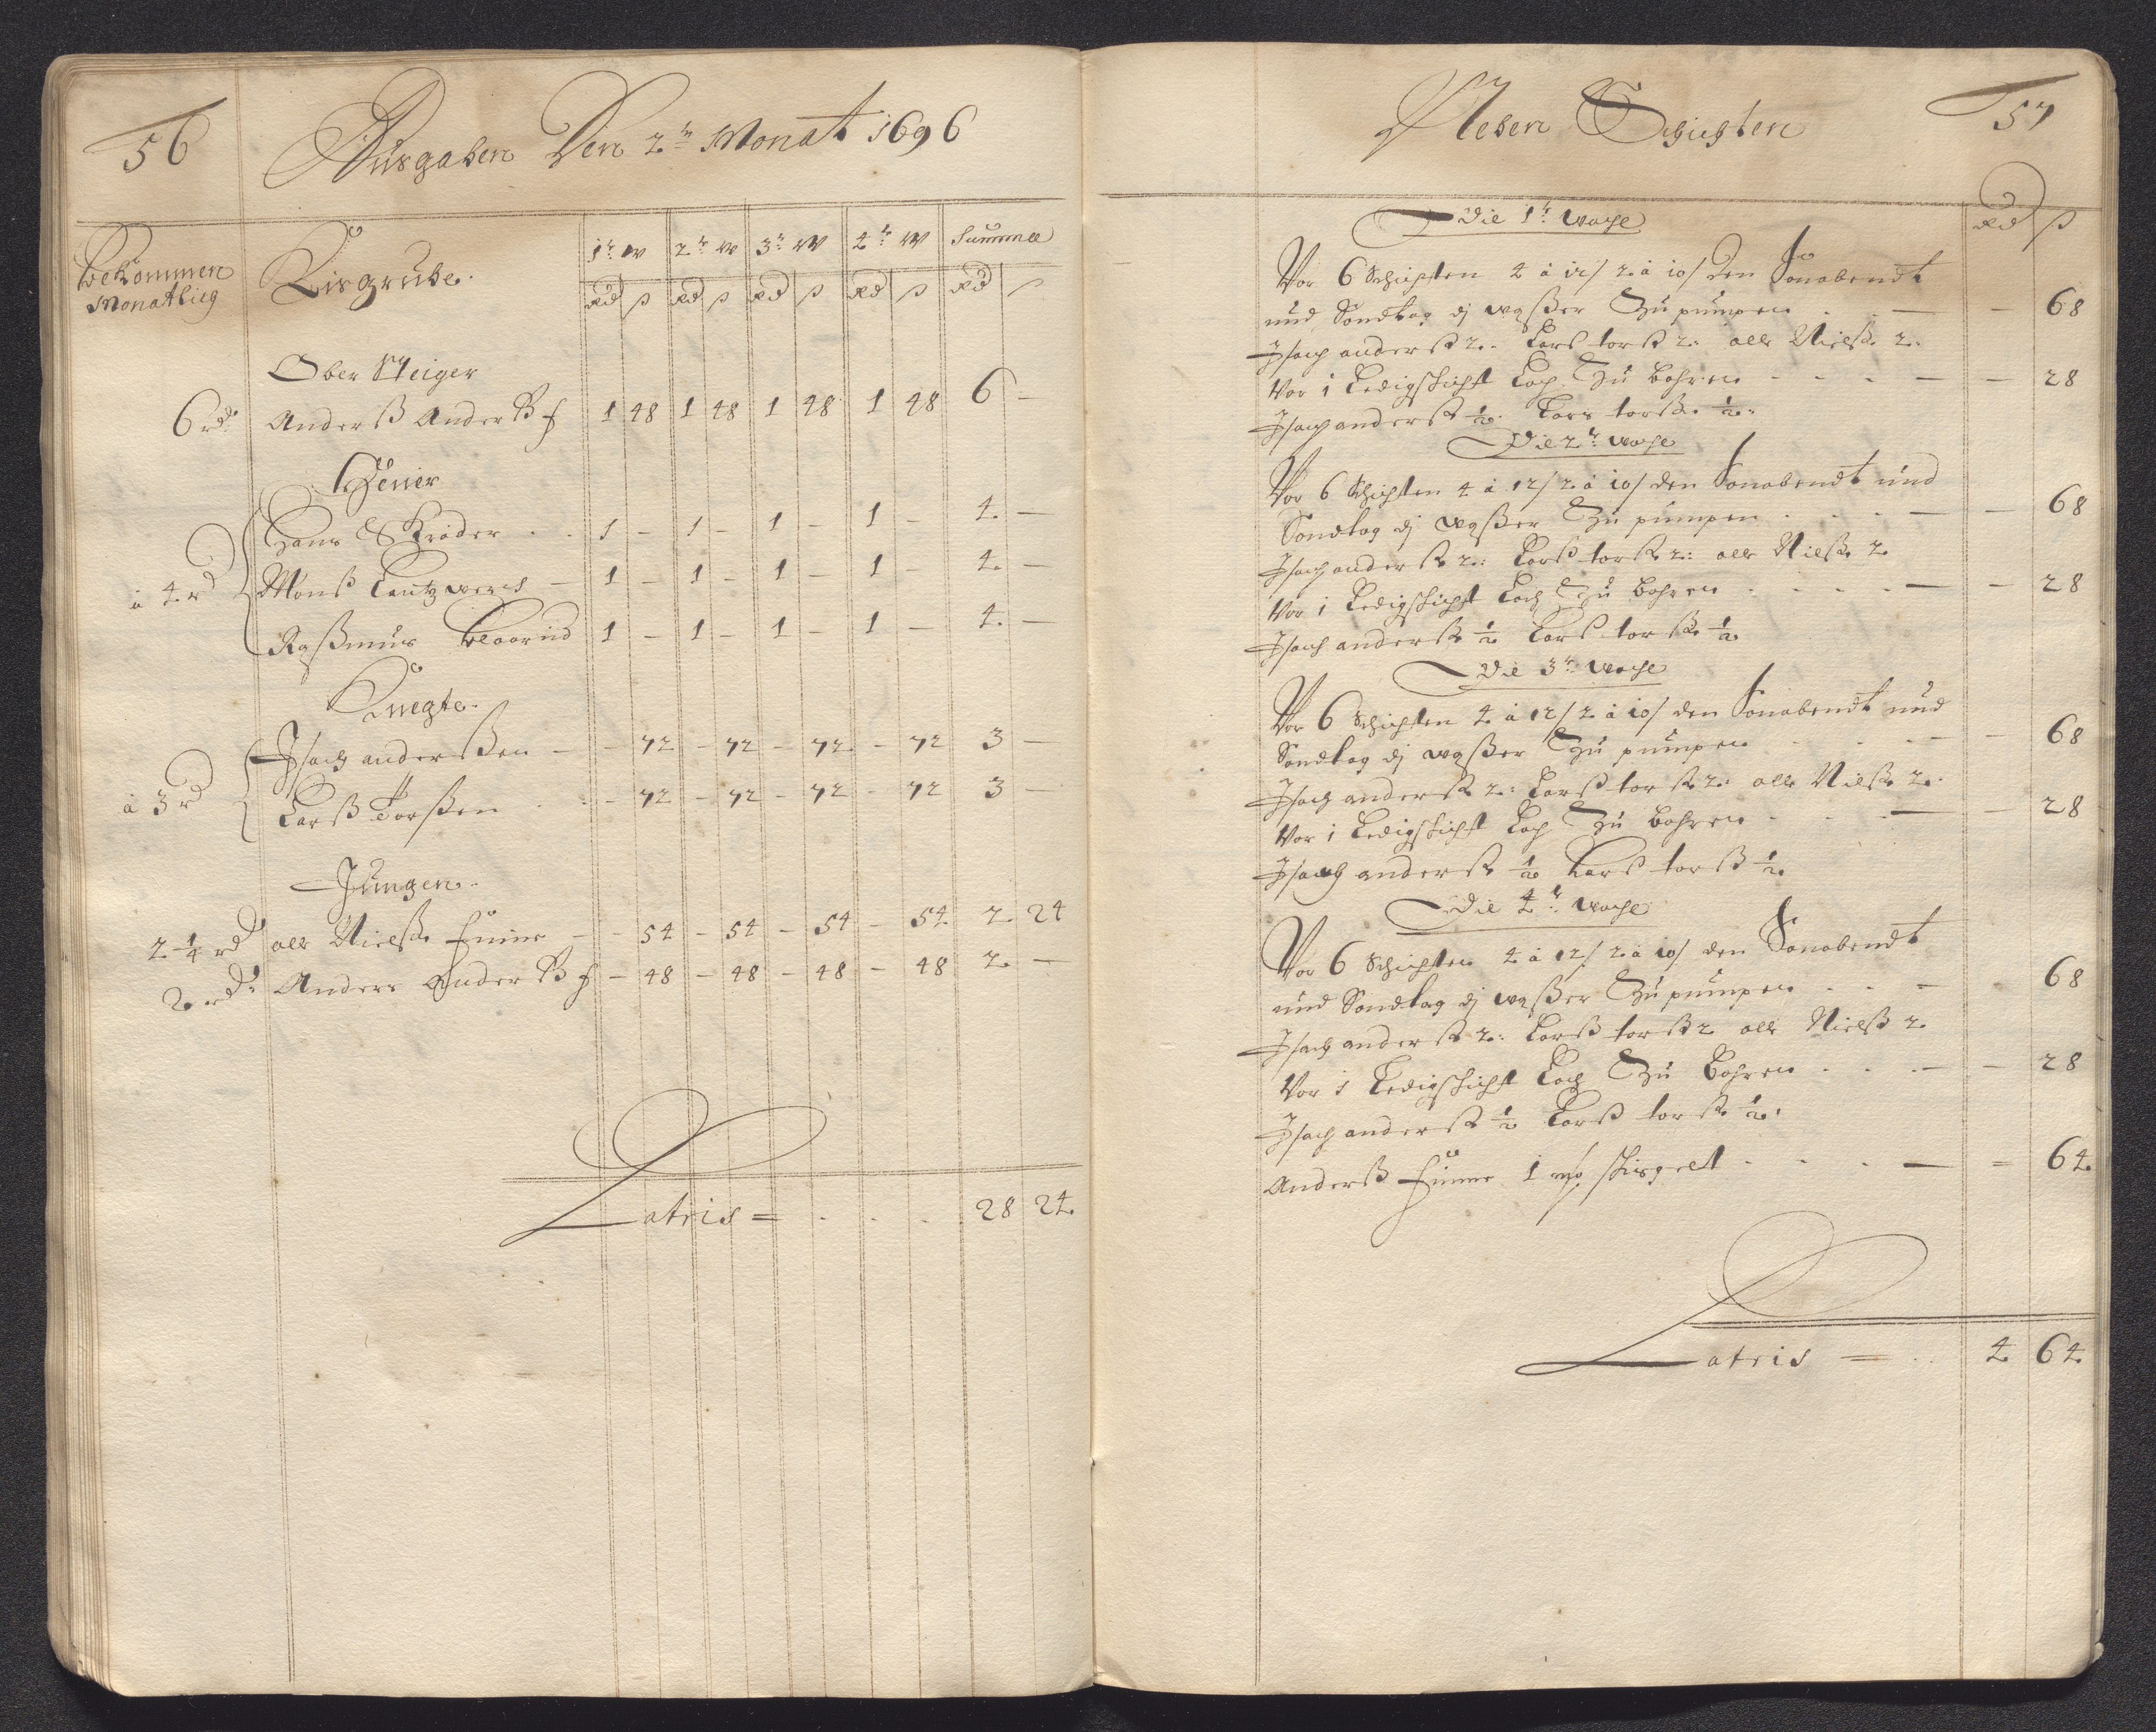 56
Ausgaben Den 2ten Monat 1696
Bekommen
Monatlich
Eisgrube.
1te W 2te W 3te W 4te W Summa
Rd ß Rd ß Rd ß Rd ß Rd ß
Ober Steiger
6 rd: Anderß Anderß 1 48 1 48 1 48 1 48 6 –
Heuer
Hans Schröder 1 – 1 – 1 – 1 – 4. –
à 4 rd Monß – 1 – 1 – 1 – 1 – 4. –
Raßmus 1 – 1 – 1 – 1 – 4. –
Knegte.
Isach anderßen – – 72 – 72 – 72 – 72 3 –
à 3 rd Larß Torßen – 72 – 72 – 72 – 72 3 –
Jungen.
2 1/4 rd olle Nielß – – 54 – 54 – 54 – 54 2. 24
2 rd: Anders Anderß – 48 – 48 – 48 – 48 2. –
Latris = . . . 28 24.
57
Neben Schichten
Rd ß
Die 1te woche
Vor 6 Schichten 4 à 12/ 2 à 10/ den Sonabendt
und Sondtag dz waßer Zu pumpen – – 68
Isach anderß 2. Larß torß 2: olle Nielß 2.
Vor 1 Ledigschicht Loch Zu bohren – – 28
Isach anderß 1/2. Lars torß 1/2:
Die 2te woche
Vor 6 Schichten 4 à 12/ 2 à 10/ den Sonabendt und
Sondtag dz waßer Zu pumpen – – 68
Isach anderß 2: Larß torß 2: olle Nielß 2
Vor 1 Ledigschicht Loch Zu bohren – – 28
Isach anderß 1/2 Larß torß 1/2
Die 3te woche
Vor 6 Schichten 4 à 12/ 2 à 10/ den Sonabendt und
Sondtag dz waßer Zu pumpen – – 68
Isach anderß 2: Larß torß 2: olle Nielß 2.
Vor 1 Ledigschicht Loch Zu bohren – – 28
Isach anderß 1/2 Larß torß 1/2
Die 4te woche
Vor 6 Schichten 4 à 12/ 2 à 10/ den Sonabendt
und Sondtag dz waßer Zu pumpen – 68
Isach anderß 2: Larß torß 2 olle Nielß 2
Vor 1 Ledigschicht Loch Zu bohren – – 28
Isach anderß 1/2 Larß torß 1/2.
Anderß 1 – = 64.
Latris = .. 4 64.